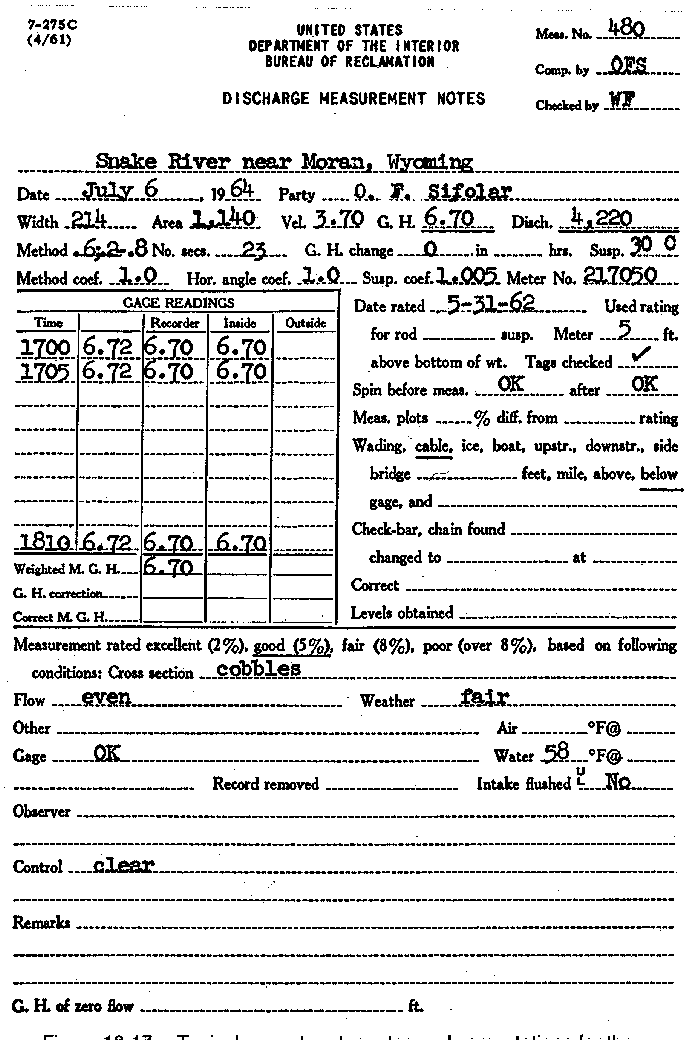 7-275C
(4/61)
UNITED STATES
DEPARTMENT OF THE INTERIOR
BUREAU OF RECLAMATION
DISCHARGE MEASUREMENT NOTES
Meas. No. 480
Comp. by OFS
Checked by WF
Snake River near Moran, Wyoming
Date July 6, 1964 Party O. F. Sifolar
Width 214 Area 1,140 Vel. 3.70 G. H. 6.70 Disch. 4,220
Method .6,2-.8 No. secs. 23 G. H. change 0 in hrs. Susp. 30 C
Method coef. 1.0 Hor. angle coef. 1.0 Susp. coef. 1.005 Meter No. 217050
GAGE READINGS
Time Recorder Inside Outside
1700 6.72 6.70 6.70
1705 6.72 6.70 6.70
1810 6.72 6.70 6.70
Weighted M. G. H. 6.70
G. H. correction
Correct M. G. H.
Date rated 5-31-62 Used rating
for rod susp. Meter 5 ft.
above bottom of wt. Tags checked ✓
Spin before meas. OK after OK
Meas. plots % diff. from rating
Wading, cable, ice, boat, upstr., downstr., side
bridge feet, mile, above, below
gage, and
Check-bar, chain found
changed to at
Correct
Levels obtained
Measurement rated excellent (2%), good (5%), fair (8%), poor (over 8%), based on following
conditions: Cross section cobbles
Flow even Weather fair
Other Air °F@
Gage OK Water 58 °F@
Record removed Intake flushed U L No
Observer
Control clear
Remarks
G. H. of zero flow ft.